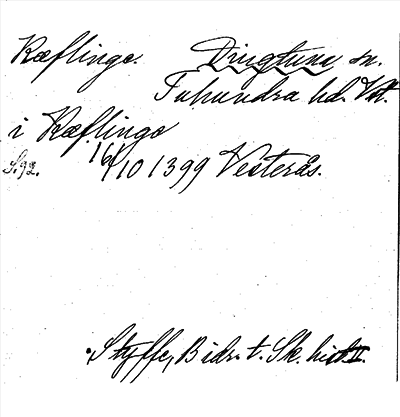 Ræflinge. Dingtuna sn.
Tuhundra hd. Vstm.
i Ræflinge
S. 92. 16/10 1399 Vesterås.
Styffe, Bidr. t. Sk. hist. II.